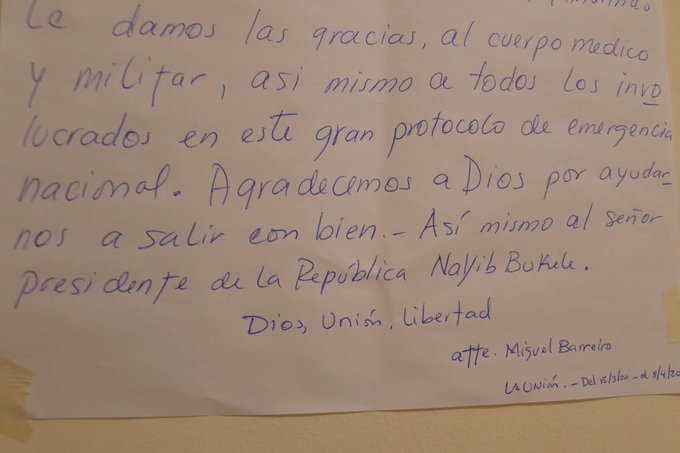 Le damos las gracias, al cuerpo medico
y militar, asi mismo a todos los invo
lucrados en este gran protocolo de emergencia
nacional. Agradecemos a Dios por ayudar-
nos a salir con bien.- Así mismo al señor
presidente de la República Nayib Bukele.
Dios, Unión, Libertad
atte. Miguel Barreiro
LA Unión. - Del 15/3/20 - al 8/4/20